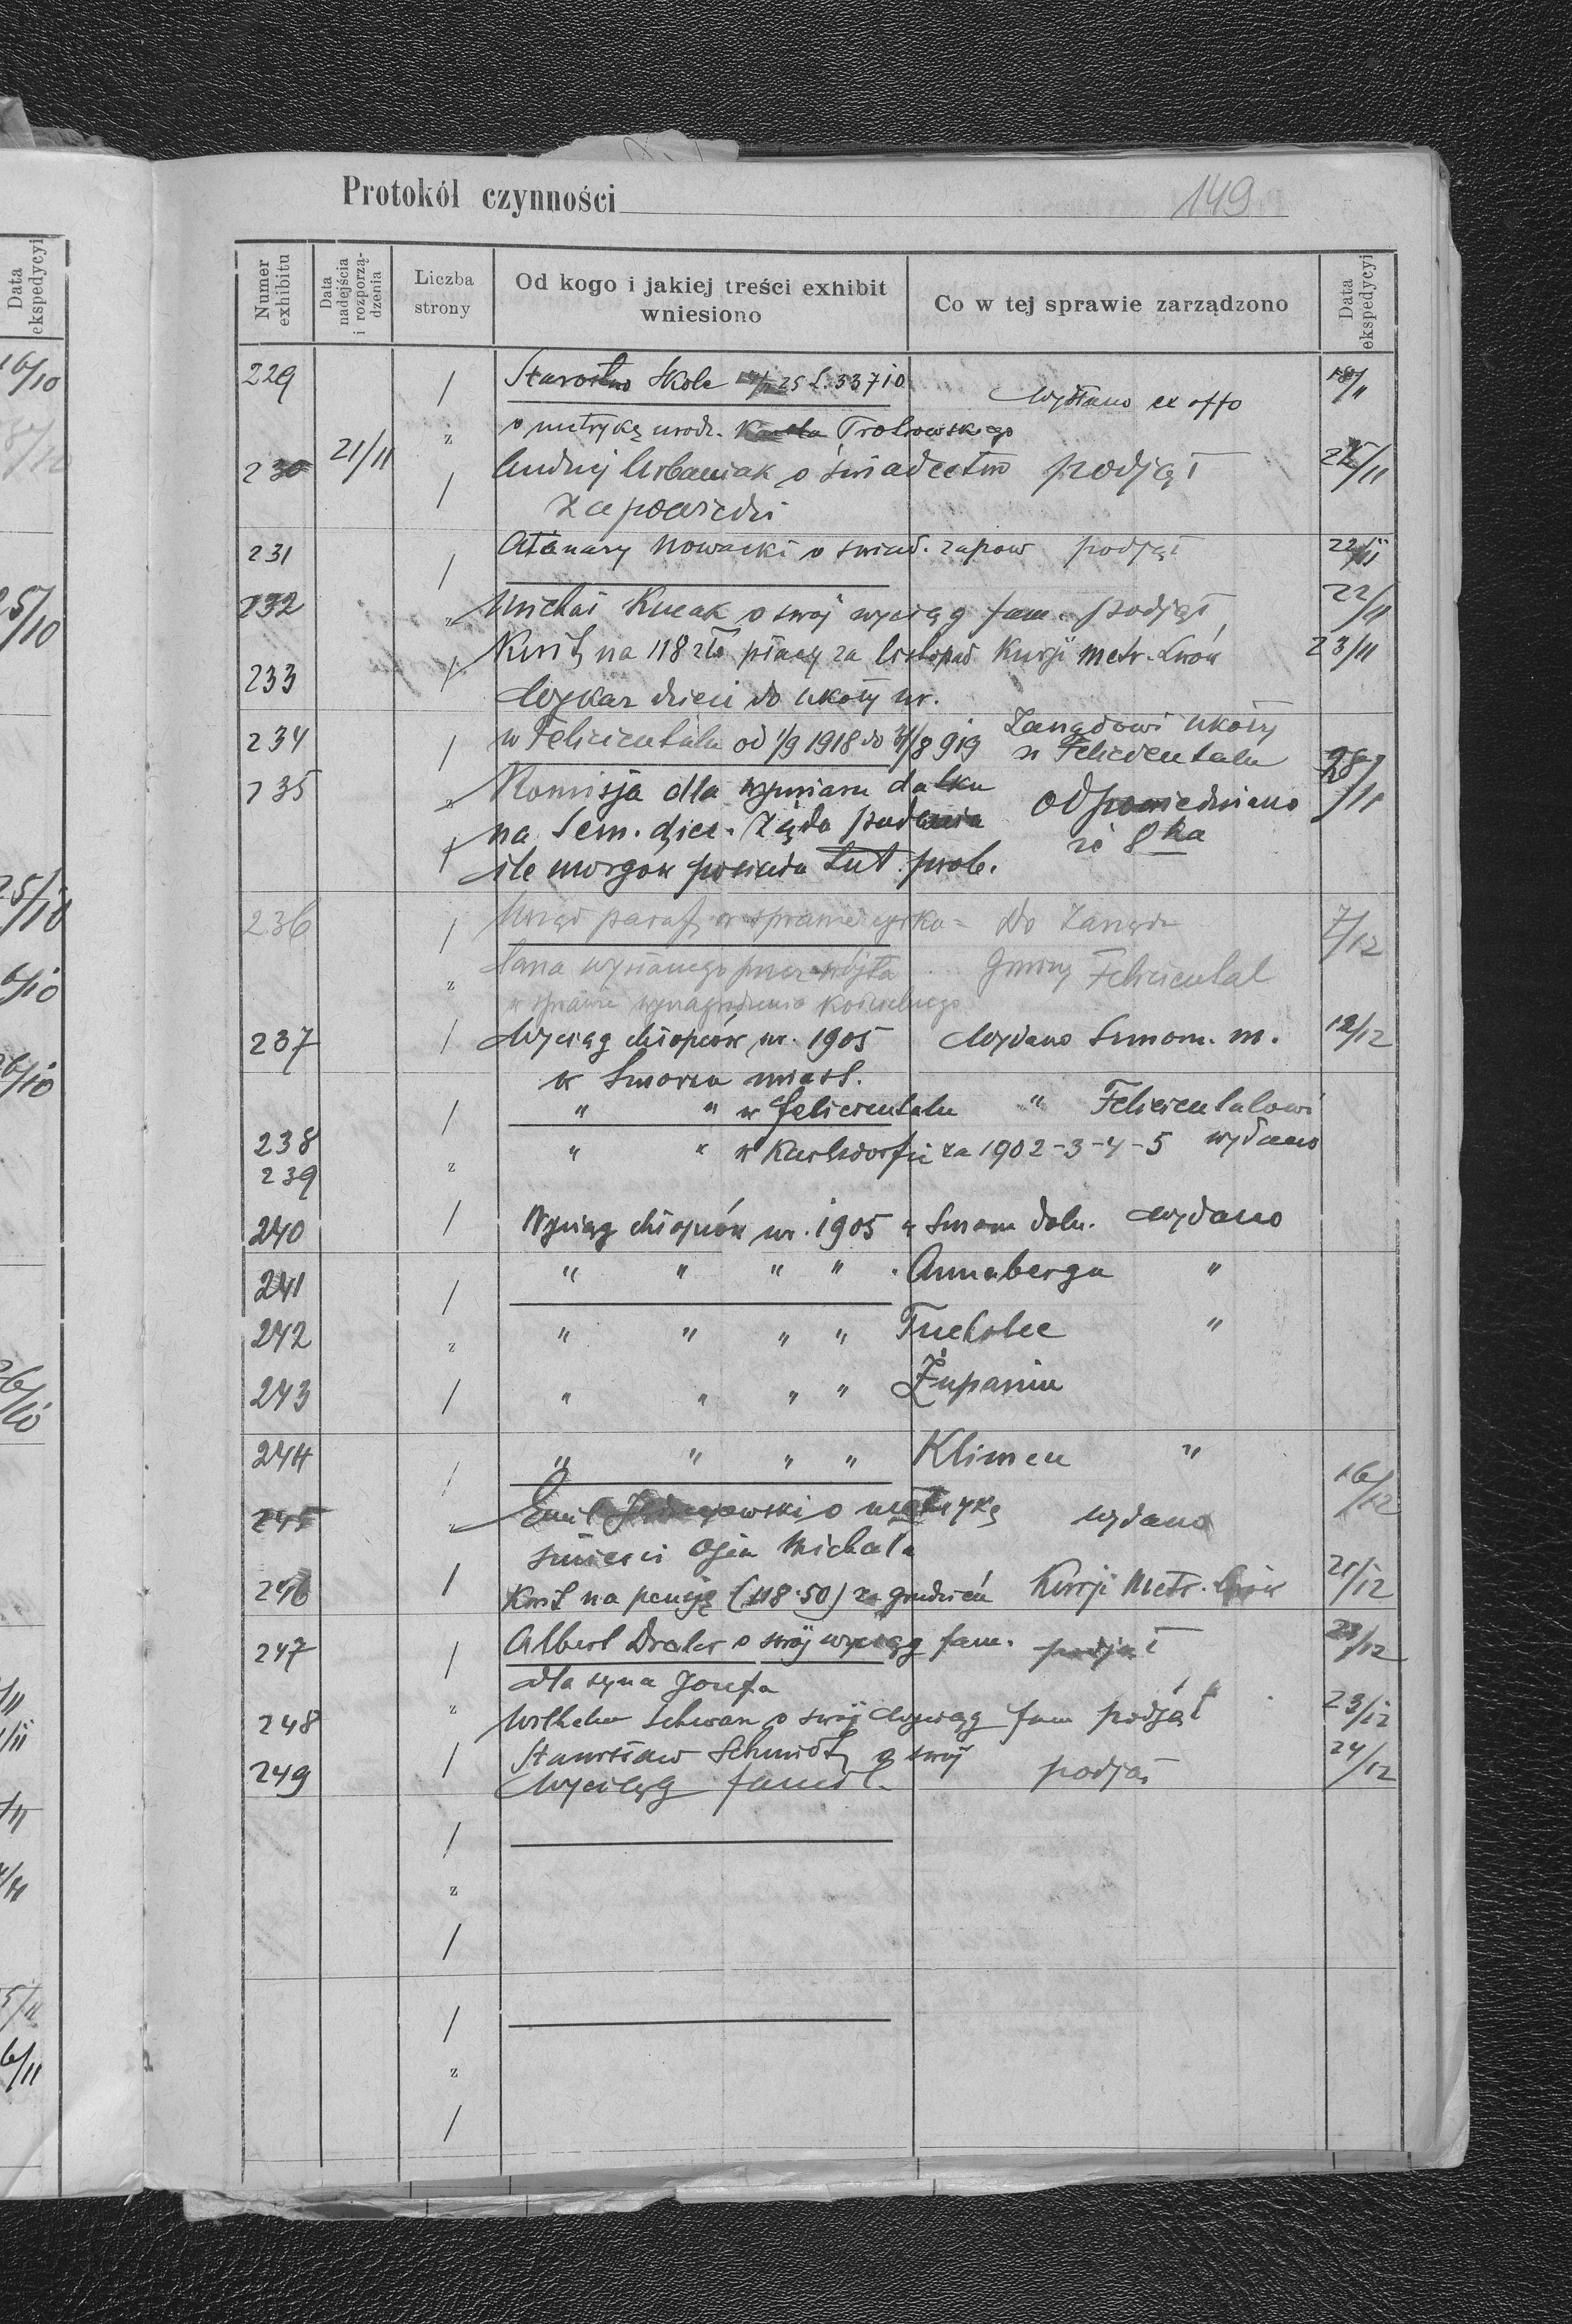 Protokół czynności
149
Data ekspedycyi
Numer exhibitu
Data nadejścia i rozporzą-dzenia
Liczba strony
Od kogo i jakiej treści exhibit wniesiono
Co w tej sprawie zarządzono
Data ekspedycyi
16/10
25/10
25/10
6/10
26/10
26/10
6/11
229 Starostwo Skole 25 L. 33710 wysłano ex offo 18/11
o metrykę urodz. Karola
230 21/11 Andrzej Urbaniak o świadectwo podjął /11
zapowiedzi
231 Atanazy Nowacki o świad. zapow podjął 22/11
232 Michał o swój wyciąg fam. podjął 22/11
233 Kwit na 118 zł płacy za listopad Kurji Metr. Lwów 23/11
Wykaz dzieci do szkoły ur.
234 w Felicientalu od 1/9 1918 do 31/8 919 Zarządowi szkoły
w Felicientalu
235 Komisja dla wymiaru datku odpowiedziano 28/11
na Sem. djec. żąda podania że 8 ha
ile morgów posiada tut. prob.
236 Urząd paraf. w sprawie Do Zarządu 7/12
wysłanego przez wójta Gminy Feliciental
w sprawie wynagrodzenia kościelnego
237 Wyciąg chłopców ur. 1905 Wydano Smorz. m. 12/12
w Smorzu miast.
238 " " w Felicientalu " Felicientalowi
239 " " w Karlsdorfie za 1902-3-4-5 wydano
240 Wyciąg chłopców ur. 1905 w Smorzu doln. wydano
241 " " " " Annabergu "
242 " " " " Tucholce "
243 " " " " Żupaniu
244 " " " " Klimcu "
245 Emil o metrykę wydano 16/12
śmierci ojca Michała
246 Kwit na pensję (118.50) za grudzień Kurji Metr. Lwów 21/12
247 Albert Draler o swój wyciąg fam. podjął 23/12
dla syna Józefa
248 Wilhelm Schwarz o swój wyciąg fam podjął 23/12
249 Stanisław Schmidt o swój podjął 24/12
Wyciąg famil.